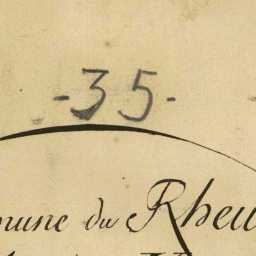 -35-
mune du Rheu